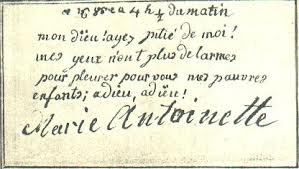 16 8bre a 4 h ½ du matin
mon dieu! ayez pitié de moi!
mes yeux n'ont plus de larmes
pour pleurer pour vous mes pauvres
enfants; adieu, adieu!
Marie Antoinette